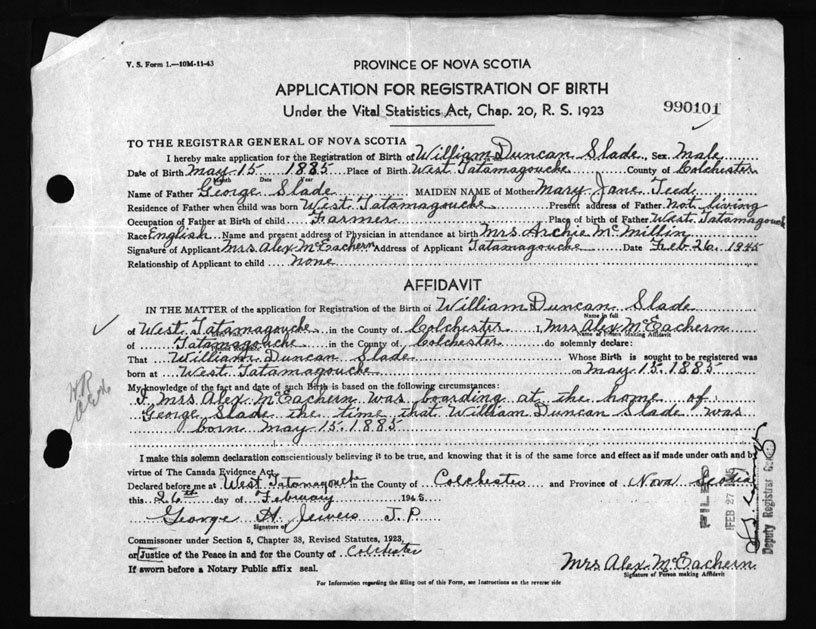 V. S. Form 1.—10M-11-43
PROVINCE OF NOVA SCOTIA
APPLICATION FOR REGISTRATION OF BIRTH
Under the Vital Statistics Act, Chap. 20, R. S. 1923
990101
TO THE REGISTRAR GENERAL OF NOVA SCOTIA
I hereby make application for the Registration of Birth of William Duncan Slade, Sex Male
Date of Birth May 15 1885 Place of Birth West Tatamagouche County of Colchester
Month Date Year
Name of Father George Slade MAIDEN NAME of Mother Mary Jane Teed
Residence of Father when child was born West Tatamagouche Present address of Father Not living
Occupation of Father at Birth of child Farmer Place of birth of Father West Tatamagouche
Race English Name and present address of Physician in attendance at birth Mrs Archie McMillin
Signature of Applicant Mrs Alex McEachern Address of Applicant Tatamagouche Date Feb 26 1945
Relationship of Applicant to child none
AFFIDAVIT
IN THE MATTER of the application for Registration of the Birth of William Duncan Slade
Name in full
of West Tatamagouche in the County of Colchester I, Mrs Alex McEachern
Name of Person Making Affidavit
of Tatamagouche in the County of Colchester do solemnly declare:
That William Duncan Slade Whose Birth is sought to be registered was
born at West Tatamagouche on May 15 1885
My knowledge of the fact and date of such Birth is based on the following circumstances:
I Mrs Alex McEachern was boarding at the home of
George Slade the time that William Duncan Slade was
born May 15 1885
I make this solemn declaration conscientiously believing it to be true, and knowing that it is of the same force and effect as if made under oath and by
virtue of The Canada Evidence Act.
Declared before me at West Tatamagouche in the County of Colchester and Province of Nova Scotia
this 26th day of February 1945
George H. Jewers J.P
Signature of
Commissioner under Section 5, Chapter 38, Revised Statutes, 1923,
or Justice of the Peace in and for the County of Colchester
If sworn before a Notary Public affix seal.
Mrs Alex McEachern
Signature of Person making Affidavit
For Information regarding the filling out of this Form, see Instructions on the reverse side
FILED
FEB 27
Deputy Registrar